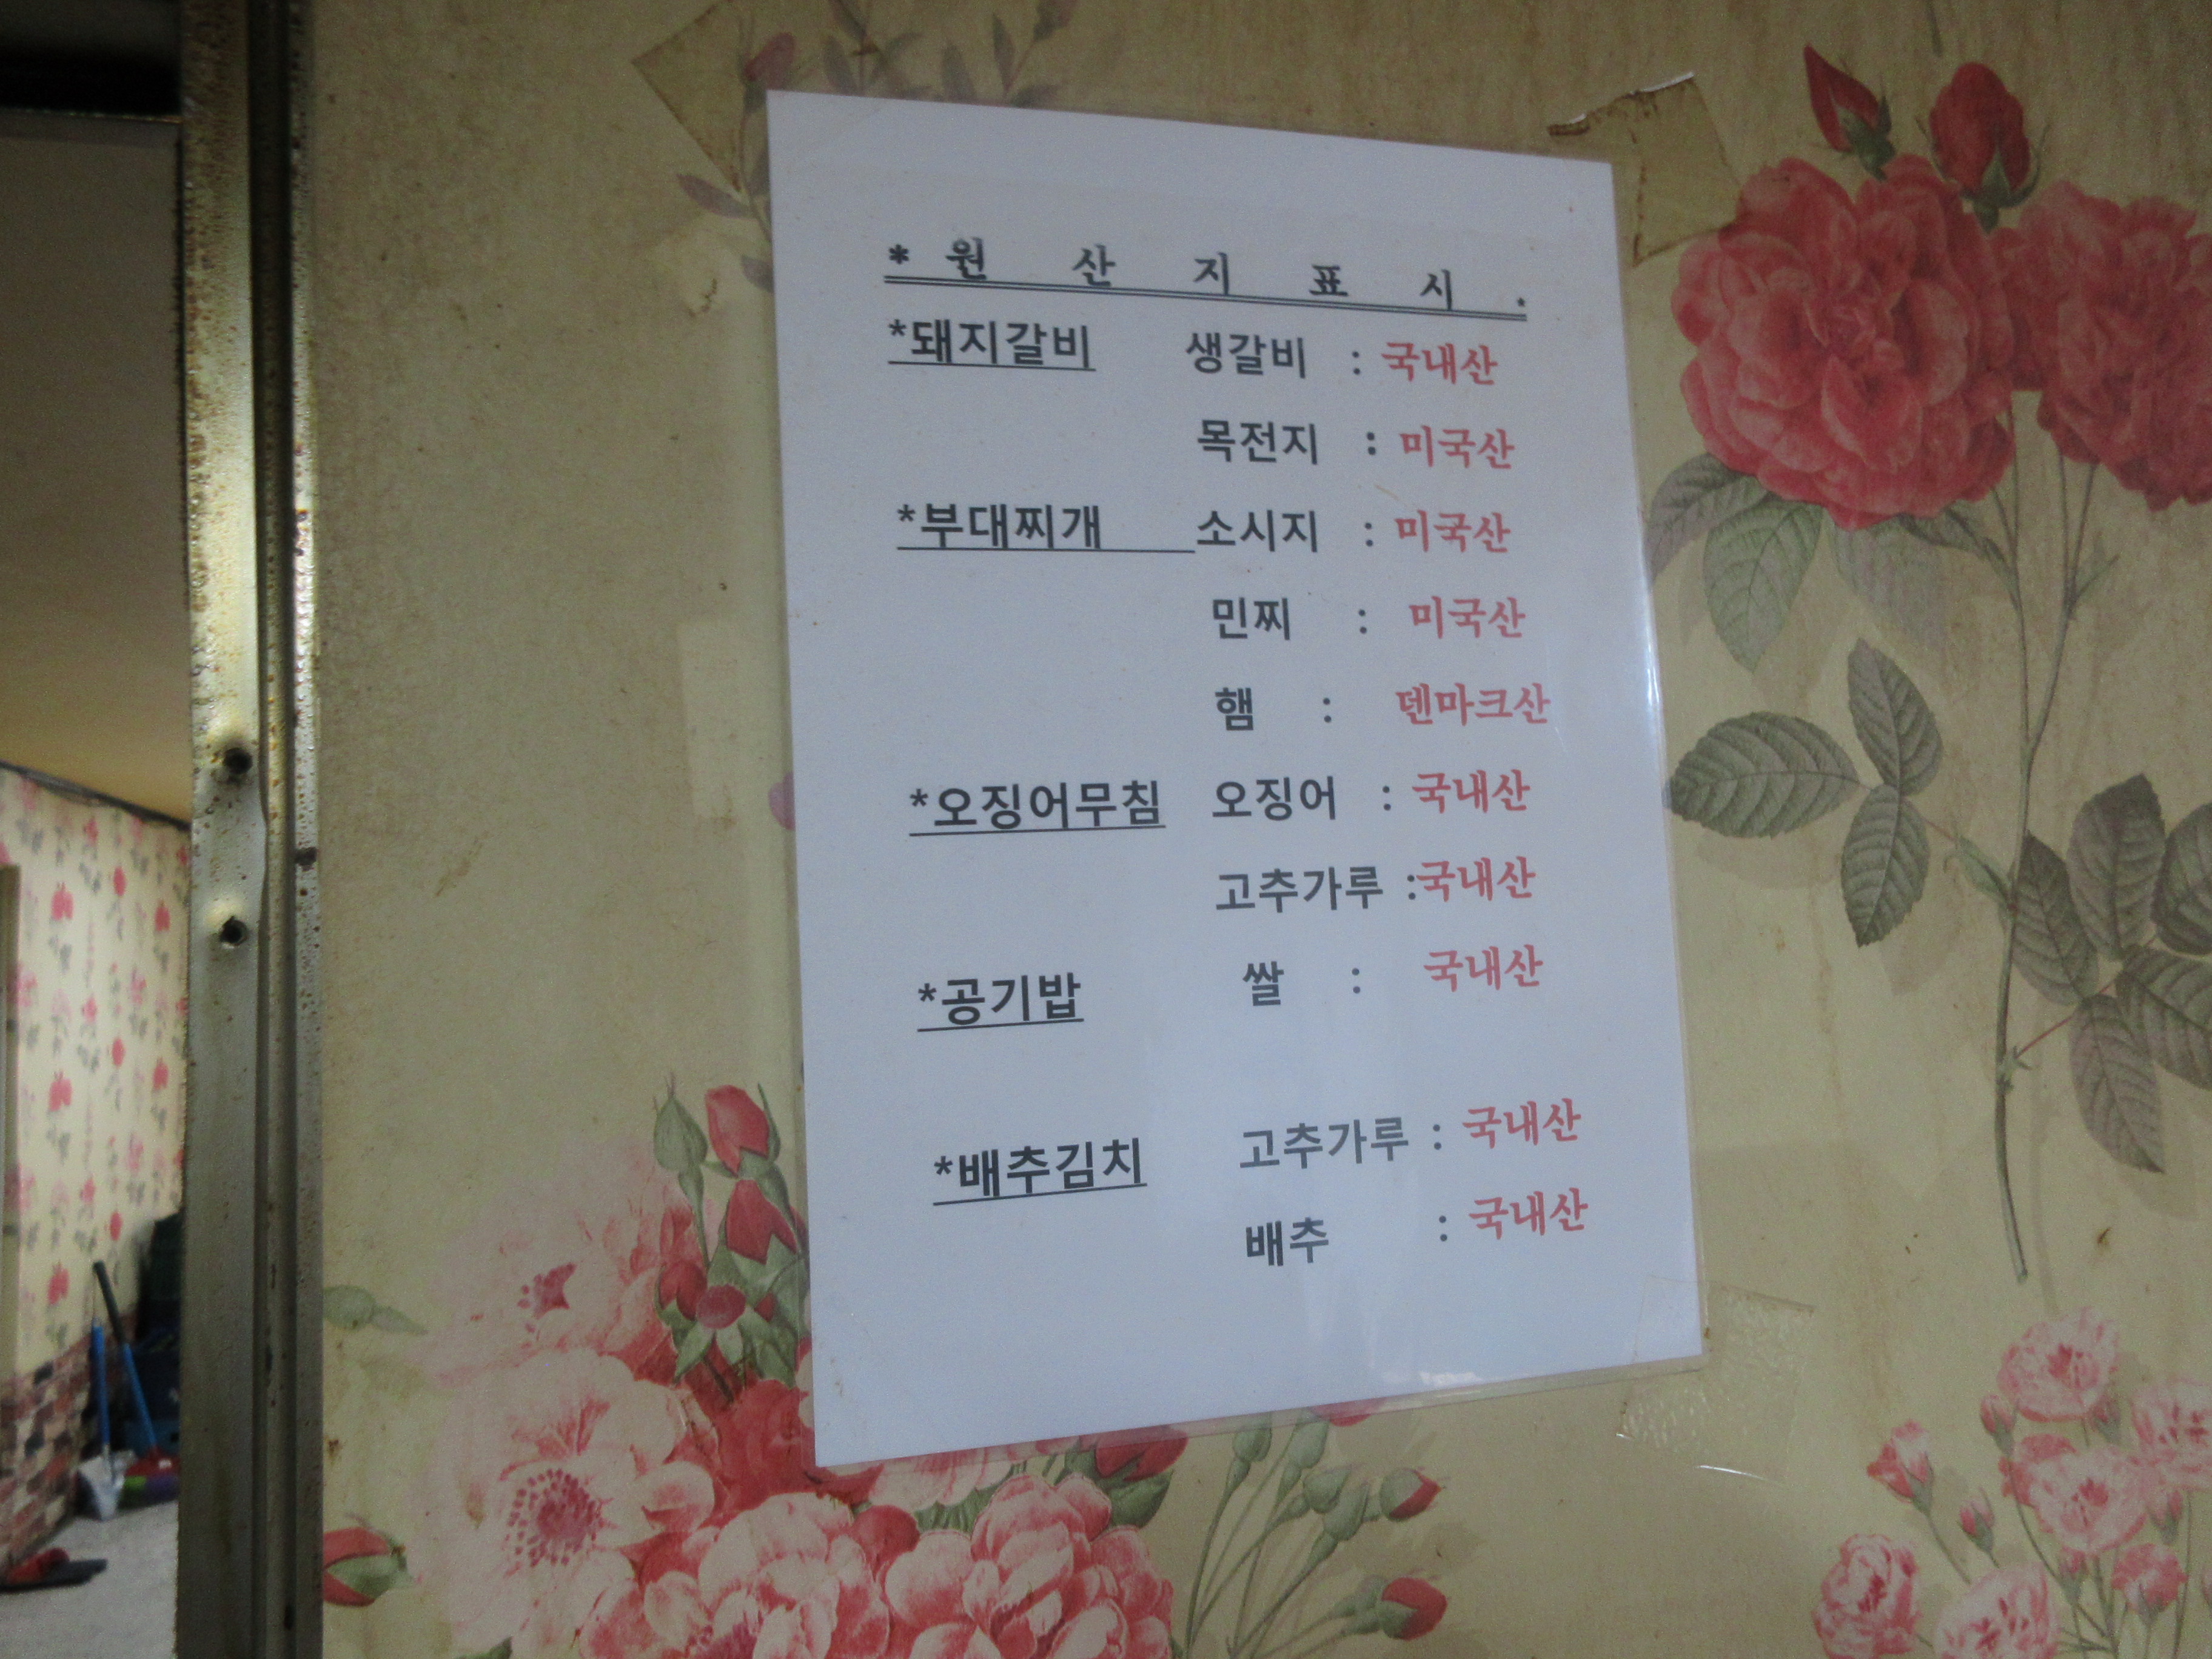 * 원 산 지 표 시 .
*돼지갈비 생갈비 : 국내산
목전지 : 미국산
*부대찌개 소시지 : 미국산
민찌 : 미국산
햄 : 덴마크산
*오징어무침 오징어 : 국내산
고추가루 :국내산
*공기밥 쌀 : 국내산
*배추김치 고추가루 : 국내산
배추 : 국내산